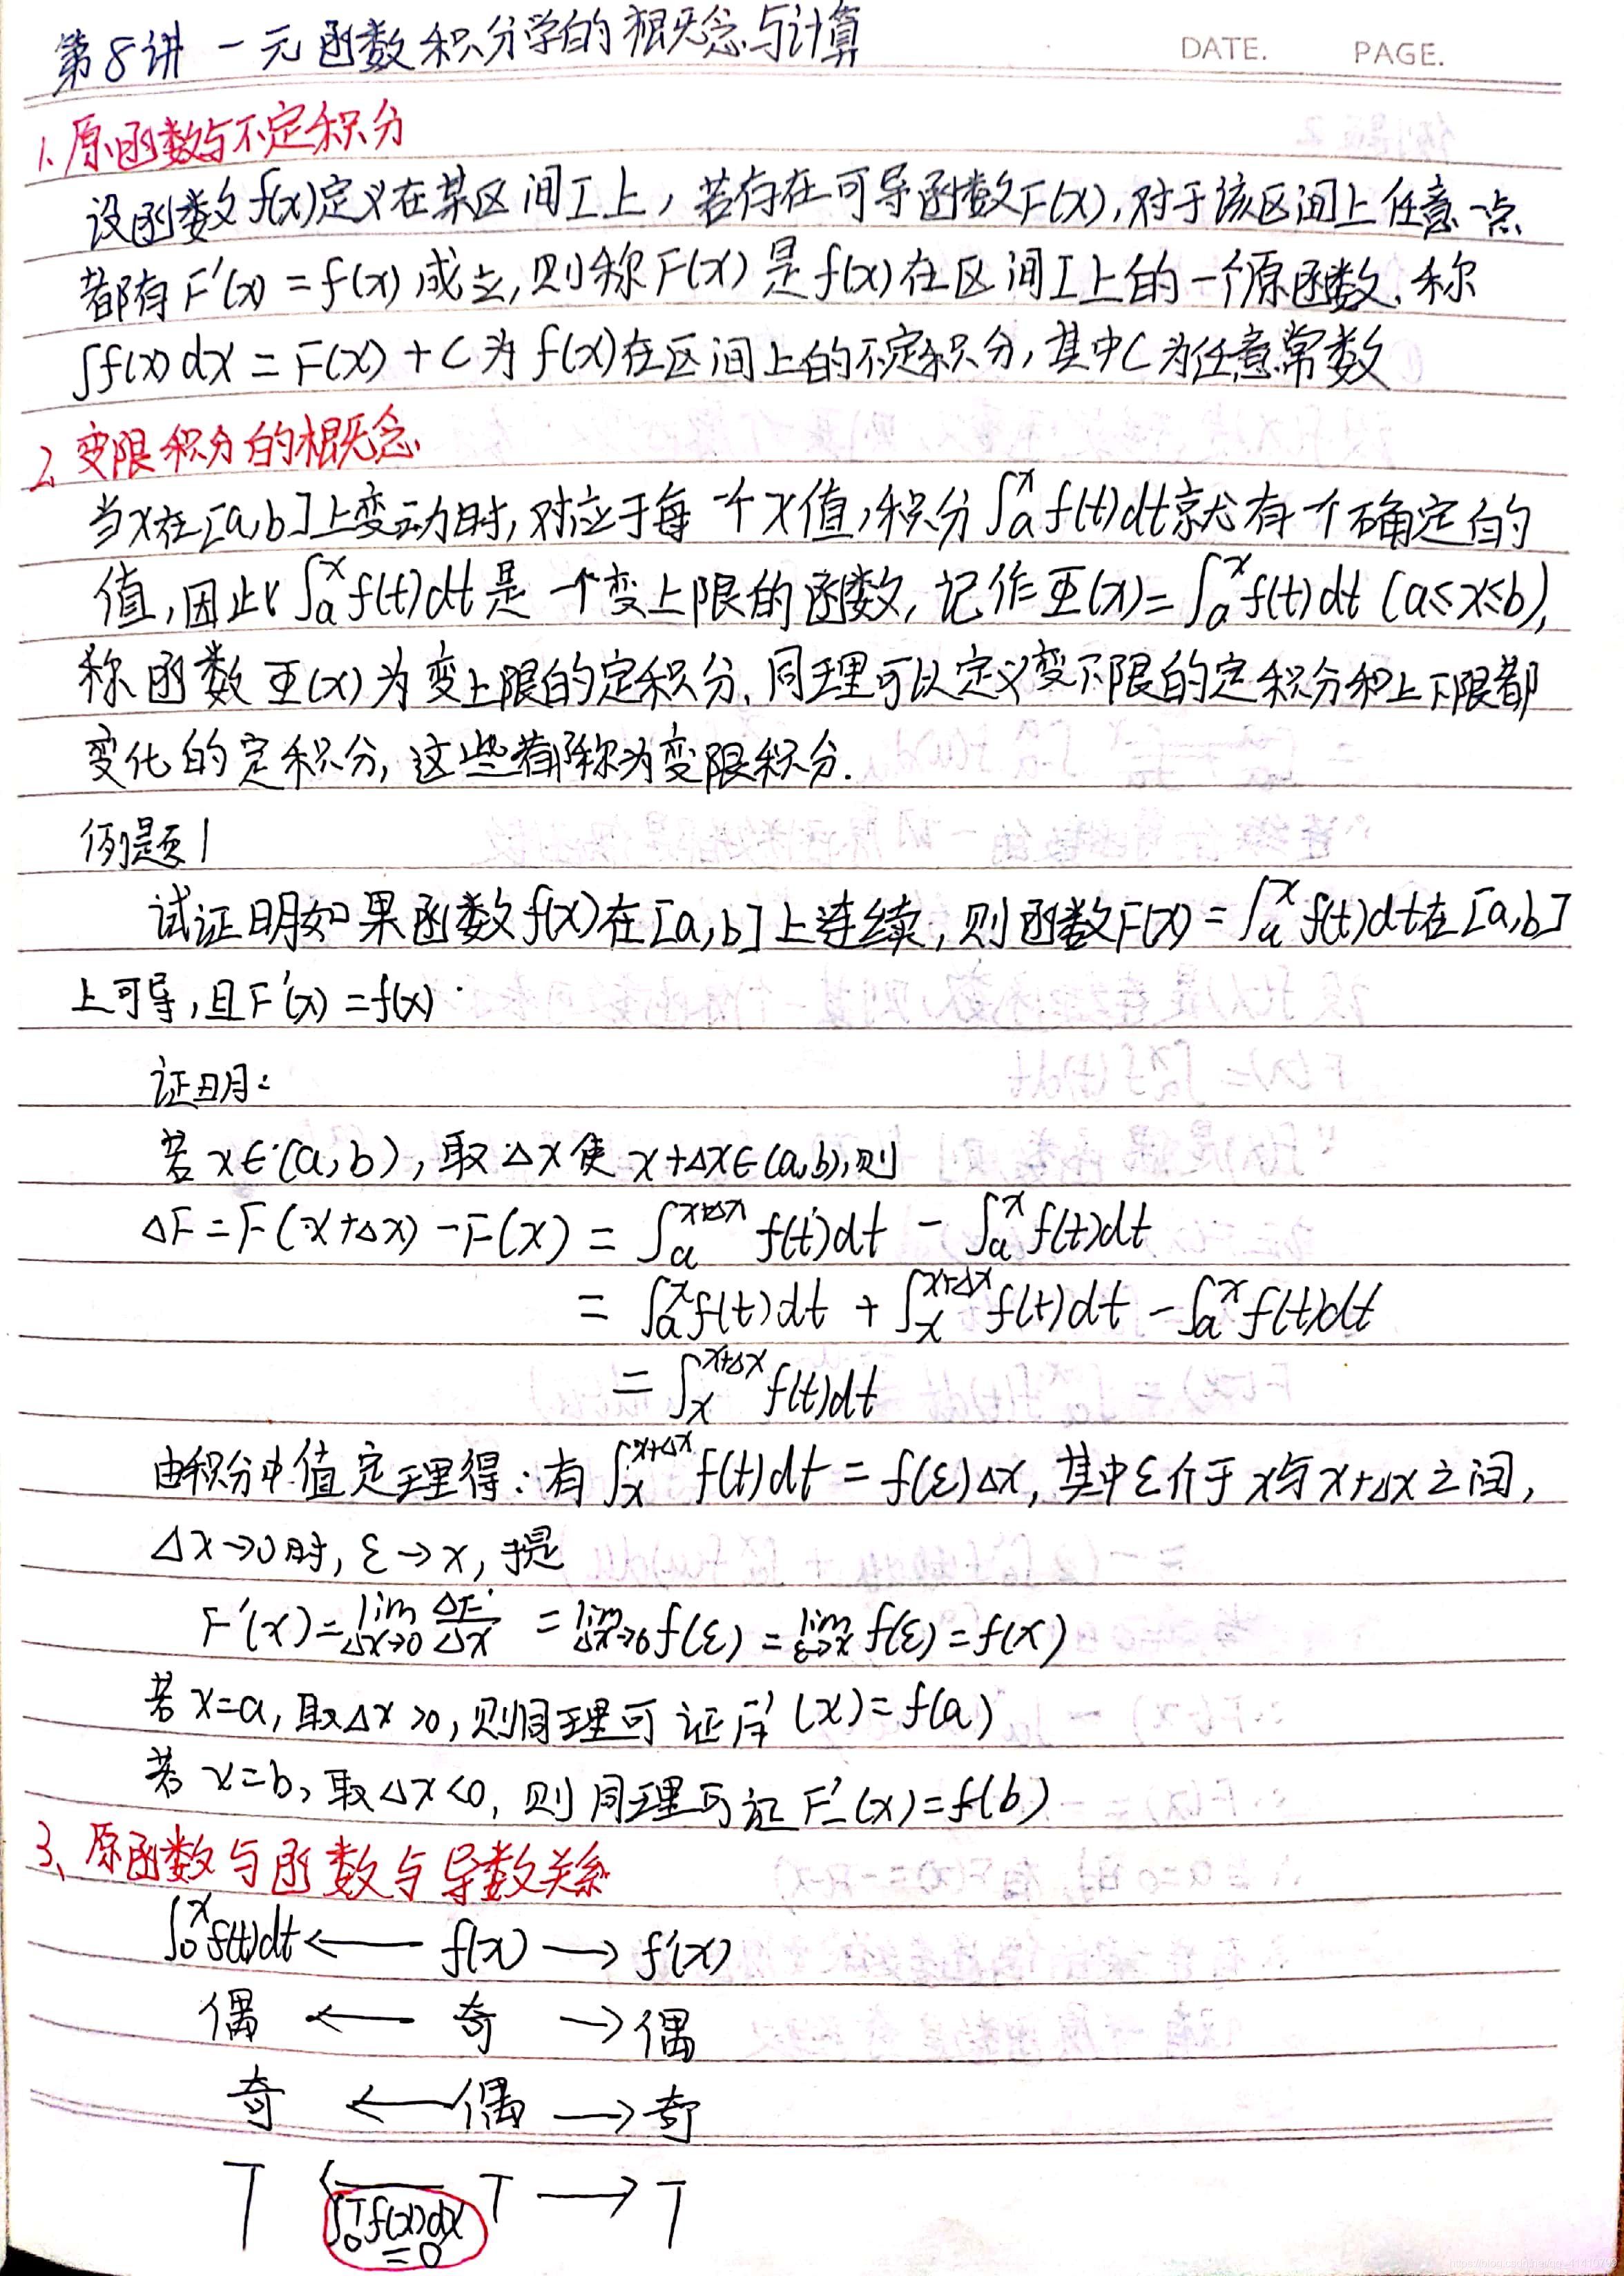 第8讲 一元函数积分学的概念与计算
DATE. PAGE.
1. 原函数与不定积分
设函数f(x)定义在某区间I上,若存在可导函数F(x),对于该区间上任意一点
都有F'(x)=f(x)成立,则称F(x)是f(x)在区间I上的一个原函数.称
∫f(x)dx=F(x)+C为f(x)在区间上的不定积分,其中C为任意常数
2. 变限积分的概念
当x在[a,b]上变动时,对应于每一个x值,积分∫ₐˣf(t)dt就有一个确定的
值,因此∫ₐˣf(t)dt是一个变上限的函数,记作Φ(x)=∫ₐˣf(t)dt (a≤x≤b),
称函数Φ(x)为变上限的定积分.同理可以定义变下限的定积分和上下限都
变化的定积分,这些都称为变限积分.
例题1
试证明如果函数f(x)在[a,b]上连续,则函数F(x)=∫ₐˣf(t)dt在[a,b]
上可导,且F'(x)=f(x).
证明:
若x∈(a,b),取Δx使x+Δx∈(a,b),则
ΔF=F(x+Δx)-F(x)=∫ₐ^{x+Δx}f(t)dt-∫ₐˣf(t)dt
=∫ₐˣf(t)dt+∫ₓ^{x+Δx}f(t)dt-∫ₐˣf(t)dt
=∫ₓ^{x+Δx}f(t)dt
由积分中值定理得:有∫ₓ^{x+Δx}f(t)dt=f(ε)Δx,其中ε介于x与x+Δx之间,
Δx→0时,ε→x,于是
F'(x)=lim_{Δx→0} ΔF/Δx=lim_{Δx→0} f(ε)=lim_{ε→x} f(ε)=f(x)
若x=a,取Δx>0,则同理可证F₊'(x)=f(a)
若x=b,取Δx<0,则同理可证F₋'(x)=f(b)
3、原函数与函数与导数关系
∫₀ˣf(t)dt ← f(x) → f'(x)
偶 ← 奇 → 偶
奇 ← 偶 → 奇
T ← T → T
∫₀ᵀf(x)dx
=0